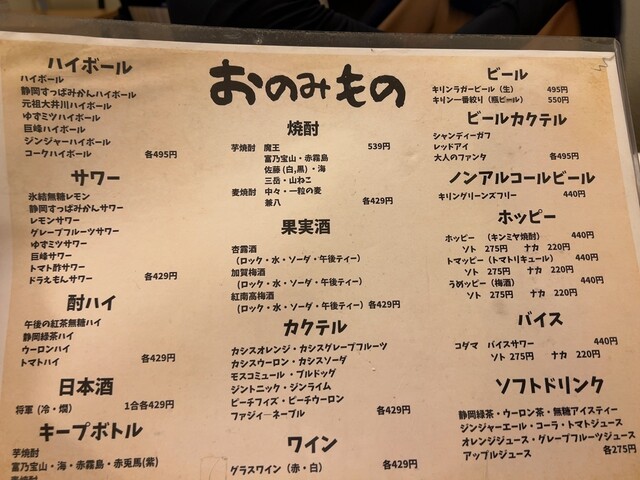 おのみもの
ハイボール
ハイボール
静岡すっぱみかんハイボール
元祖大井川ハイボール
ゆずミツハイボール
巨峰ハイボール
ジンジャーハイボール
コークハイボール 各495円
サワー
氷結無糖レモン
静岡すっぱみかんサワー
レモンサワー
グレープフルーツサワー
ゆずミツサワー
巨峰サワー
トマト酢サワー
ドラえもんサワー 各429円
酎ハイ
午後の紅茶無糖ハイ
静岡緑茶ハイ
ウーロンハイ
トマトハイ 各429円
日本酒
将軍 (冷・燗) 1合各429円
キープボトル
芋焼酎
富乃宝山・海・赤霧島・赤兎馬(紫)
焼酎
芋焼酎 魔王 539円
富乃宝山・赤霧島
佐藤 (白,黒) ・海
三岳・山ねこ
麦焼酎 中々・一粒の麦
兼八 各429円
果実酒
杏露酒
(ロック・水・ソーダ・午後ティー)
加賀梅酒
(ロック・水・ソーダ・午後ティー)
紅南高梅酒
(ロック・水・ソーダ・午後ティー) 各429円
カクテル
カシスオレンジ・カシスグレープフルーツ
カシスウーロン・カシスソーダ
モスコミュール・ブルドッグ
ジントニック・ジンライム
ピーチフィズ・ピーチウーロン
ファジィーネーブル 各429円
ワイン
グラスワイン (赤・白) 各429円
ビール
キリンラガービール (生) 495円
キリン一番絞り (瓶ビール) 550円
ビールカクテル
シャンディーガフ
レッドアイ
大人のファンタ 各495円
ノンアルコールビール
キリングリーンズフリー 440円
ホッピー
ホッピー (キンミヤ焼酎) 440円
ソト 275円 ナカ 220円
トマッピー (トマトリキュール) 440円
ソト 275円 ナカ 220円
うめッピー (梅酒) 440円
ソト 275円 ナカ 220円
バイス
コダマ バイスサワー 440円
ソト 275円 ナカ 220円
ソフトドリンク
静岡緑茶・ウーロン茶・無糖アイスティー
ジンジャーエール・コーラ・トマトジュース
オレンジジュース・グレープフルーツジュース
アップルジュース 各275円